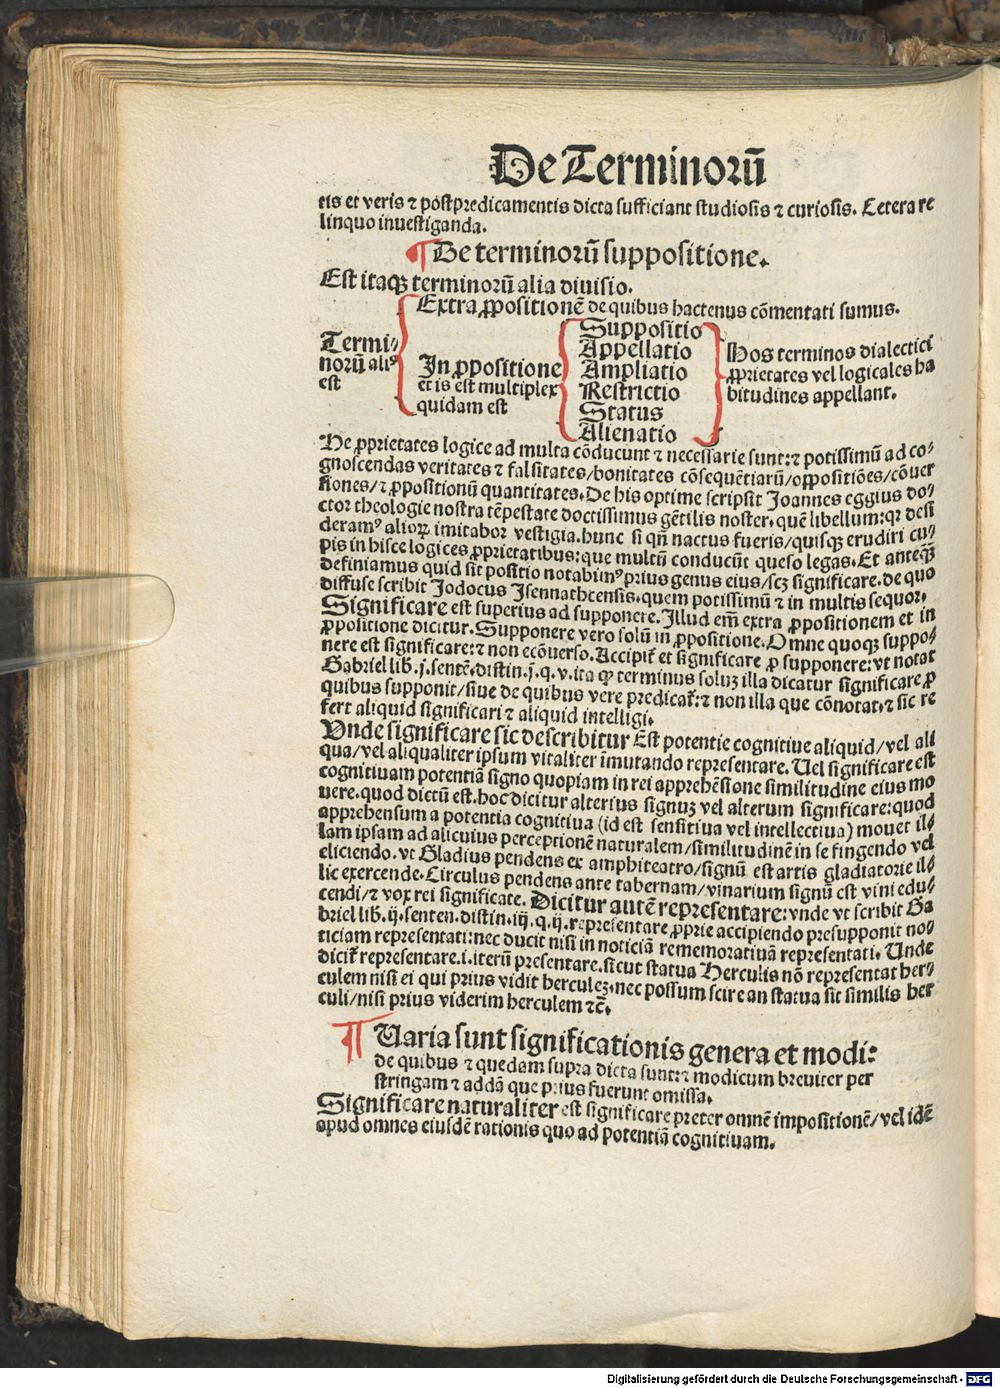 De Terminorū
tis et veris ⁊ postpredicamentis dicta sufficiant studiosis ⁊ curiosis. Cetera re
linquo inuestiganda.
¶ De terminorū suppositione.
Est itaqꝫ terminorū alia diuisio.
Extra ꝓpositionē de quibus hactenus cōmentati sumus.
Termi⸗
norū aliꝰ
est
In ꝓpositione
et is est multiplex
quidam est
Suppositio
Appellatio
Ampliatio
Restrictio
Status
Alienatio
Hos terminos dialectici
ꝓprietates vel logicales ha
bitudines appellant.
He ꝓprietates logice ad multa cōducunt ⁊ necessarie sunt:⁊ potissimū ad co⸗
gnoscendas veritates ⁊ falsitates/bonitates cōsequētiarū/oppositiōes/cōuer
siones/⁊ ꝓpositionū quantitates. De his optime scripsit Joannes eggius do⸗
ctor theologie nostra tēpestate doctissimus gētilis noster. quē libellum:qꝛ desi
deramꝰ alioꝝ imitabor vestigia. hunc si qn̄ nactus fueris/quisqꝫ erudiri cu⸗
pis in hisce logices ꝓprietatibus: que multū conducūt queso legas. Et anteqꝫ̄
definiamus quid sit positio notabimꝰ prius genus eius/scꝫ significare. de quo
diffuse scribit Jodocus Isennathcensis. quem potissimū ⁊ in multis sequor.
Significare est superius ad supponere. Illud em̄ extra ꝓpositionem et in
ꝓpositione dicitur. Supponere vero solū in ꝓpositione. Omne quoqꝫ suppo⸗
nere est significare: ⁊ non ecōuerso. Accipit᷑ et significare ꝓ supponere: vt notat
Gabriel lib. j. sentē. distin. j. q. v. ita ꝙ terminus soluꝫ illa dicatur significare ꝓ
quibus supponit/siue de quibus vere predicat᷑: ⁊ non illa que cōnotat. ⁊ sic re
fert aliquid significari ⁊ aliquid intelligi.
Unde significare sic describitur Est potentie cognitiue aliquid/vel ali
qua/vel aliqualiter ipsum vitaliter īmutando representare. Uel significare est
cognitiuam potentiā signo quopiam in rei apprehēsione similitudine eius mo
uere. quod dictū est. hoc dicitur alterius signuꝫ vel alterum significare: quod
apprehensum a potentia cognitiua (id est sensitiua vel intellectiua) mouet il⸗
lam ipsam ad alicuius perceptionē naturalem/similitudinē in se fingendo vel
eliciendo. vt Gladius pendens ex amphiteatro/signū est artis gladiatorie il⸗
lic exercende. Circulus pendens ante tabernam/vinarium signū est vini edu⸗
cendi/⁊ vox rei significate. Dicitur autē representare: vnde vt scribit Ga
briel lib. ij. senten. distin. iij. q. ij. representare ꝓprie accipiendo presupponit no⸗
ticiam representati: nec ducit nisi in noticiā rememoratiuā representati. Unde
dicit᷑ representare. i. iterū presentare. sicut statua Herculis nō representat her⸗
culem nisi ei qui prius vidit herculeꝫ. nec possum scire an statua sit similis her
culi/nisi prius viderim herculem ⁊c̄.
¶ Uaria sunt significationis genera et modi:
de quibus ⁊ quedam supra dicta sunt: ⁊ modicum breuiter per
stringam ⁊ addā que prius fuerunt omissa.
Significare naturaliter est significare preter omnē impositionē/vel idē
apud omnes eiusdē rationis quo ad potentiā cognitiuam.
Digitalisierung gefördert durch die Deutsche Forschungsgemeinschaft - DFG